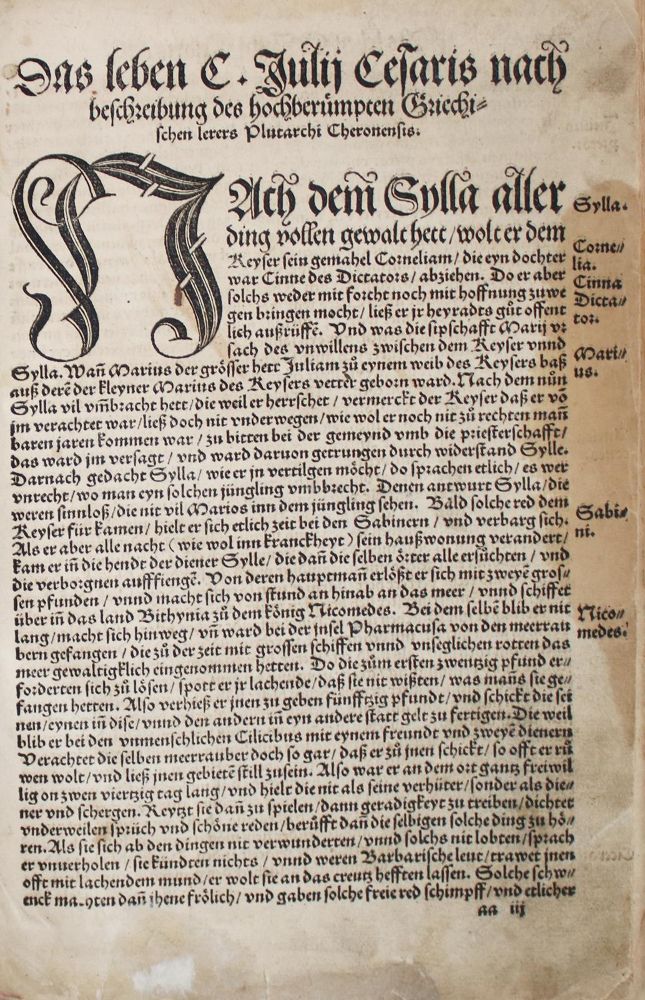 Das leben C. Julij Cesaris nach
beschreibung des hochberümpten Griechi-
schen lerers Plutarchi Cheronensis.
NAch dem̃ Sylla aller
ding vollen gewalt hett/wolt er dem
Keyser sein gemahel Corneliam/die eyn dochter
war Cinne des Dictators/abziehen. Do er aber
solchs weder mit forcht noch mit hoffnung zuwe
gen bringen mocht/ließ er jr heyradts gůt offent
lich außrüffẽ. Vnd was die sipschafft Marij vr
sach des vnwillens zwischen dem Keyser vnnd
Sylla. Wañ Marius der grösser hett Juliam zů eynem weib des Keysers baß
auß derẽ der kleyner Marius des Keysers vetter geborn ward. Nach dem nůn
Sylla vil vm̃bracht hett/die weil er herrschet/vermerckt der Keyser daß er võ
jm verachtet war/ließ doch nit vnderwegen/wie wol er noch nit zů rechten mañ
baren jaren kommen war/zů bitten bei der gemeynd vmb die priesterschafft/
das ward jm versagt/vnd ward daruon getrungen durch widerstand Sylle.
Darnach gedacht Sylla/wie er jn vertilgen möcht/do sprachen etlich/es wer
vnrecht/wo man eyn solchen jüngling vmbbrecht. Denen antwurt Sylla/die
weren sinnloß/die nit vil Marios inn dem jüngling sehen. Bald solche red dem
Keyser für kamen/hielt er sich etlich zeit bei den Sabinern/vnd verbarg sich.
Als er aber alle nacht (wie wol inn kranckheyt) sein haußwonung verandert/
kam er iñ die hendt der diener Sylle/die dañ die selben örter alle ersůchten/vnd
die verborgnen auffiengẽ. Von deren hauptmañ erlößt er sich mit zweyẽ gros-
sen pfunden/vnnd macht sich von stund an hinab an das meer/vnnd schiffet
über iñ das land Bithynia zů dem könig Nicomedes. Bei dem selbẽ blib er nit
lang/macht sich hinweg/vñ ward bei der insel Pharmacusa von den meerrau
bern gefangen/die zů der zeit mit grossen schiffen vnnd vnseglichen rotten das
meer gewaltigklich eingenommen hetten. Do die zům ersten zwentzig pfund er-
forderten sich zů lösen/spott er jr lachende/daß sie nit wißten/was mañs sie ge-
fangen hetten. Also verhieß er jnen zu geben fünfftzig pfundt/vnd schickt die sei
nen/eynen iñ disc/vnnd den andern iñ eyn andere statt gelt zu fertigen. Die weil
blib er bei den vnmenschlichen Cilicibus mit eynem freundt vnd zweyẽ dienern
Verachtet die selben meerrauber doch so gar/daß er zů jnen schickt/so offt er rů
wen wolt/vnd ließ jnen gebietẽ still zu sein. Also war er an dem ort gantz freiwil
lig on zwen viertzig tag lang/vnd hielt die nit als seine verhüter/sonder als die-
ner vnd schergen. Reytzt sie dañ zu spielen/dann geradigkeyt zu treiben/dichtet
vnderweilen sprüch vnd schöne reden/berüfft dañ die selbigen solche ding zu hö-
ren. Als sie sich ab den dingen nit verwunderten/vnnd solchs nit lobten/sprach
er vnuerholen/sie kündten nichts/vnnd weren Barbarische leut/trawet jnen
offt mit lachendem mund/er wolt sie an das creutz hefften lassen. Solche schw-
enck machten dañ jhene frölich/vnd gaben solche freie red schimpff/vnd etlicher
aa iij
Sylla.
Corne-
lia.
Cinna
Dicta-
tor.
Mari-
us.
Sabi-
ni.
Nico-
medes.